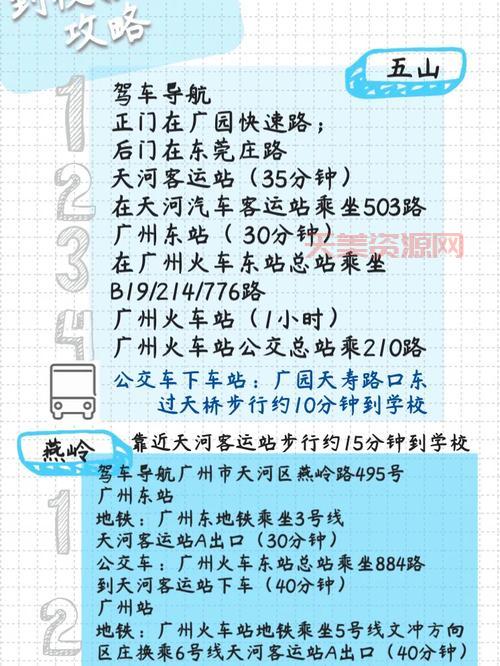 攻略
五山
1
驾车导航
正门在广园快速路；
后门在东莞庄路
2
天河客运站（35分钟）
在天河汽车客运站乘坐503路
3
广州东站（ 30分钟）
在广州火车东站总站乘坐
B19/214/776路
4
广州火车站（1小时）
广州火车站公交总站乘210路
公交车下车站：广园天寿路口东
过天桥步行约10分钟到学校
天美资源网
燕岭
靠近天河客运站步行约15分钟到学校
驾车导航广州市天河区燕岭路495号
1
广州东站
地铁：广州东地铁乘坐3号线
天河客运站A出口（30分钟）
公交车：广州火车东站总站乘坐884路
到天河客运站下车（40分钟）
2
广州站
地铁：广州火车站地铁乘坐5号线文冲方向
区庄换乘6号线天河客运站A出口（40分钟）